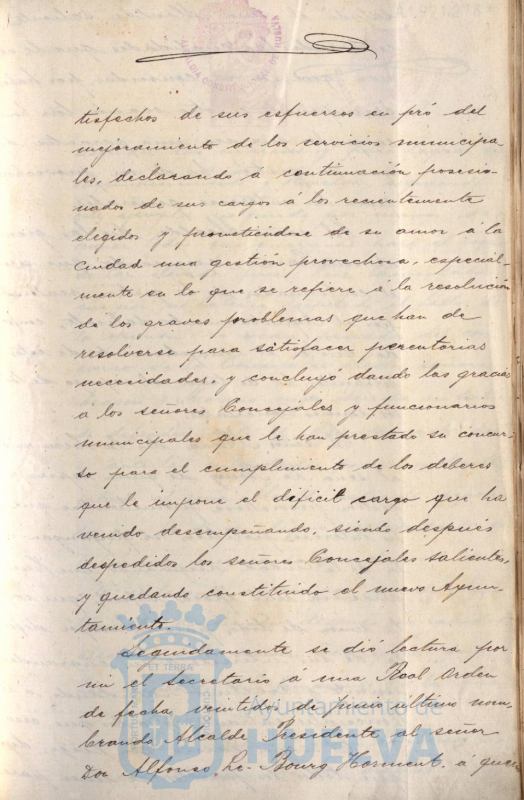 tisfechos de sus esfuerzos en pró del
mejoramiento de los servicios municipa-
les, declarando á continuación posesio-
nados de sus cargos á los recientemente
elegidos y prometiéndose de su amor á la
Ciudad una gestión provechosa, especial-
mente en lo que se refiere á la resolución
de los graves problemas que han de
resolverse para satisfacer perentorias
necesidades, y concluyó dando las gracias
á los señores Concejales y funcionarios
municipales que le han prestado su concur-
so para el cumplimiento de los deberes
que le impone el dificil cargo que ha
venido desempeñando, siendo después
despedidos los señores Concejales salientes,
y quedando constituido el nuevo Ayun-
tamiento.
Seguidamente se dió lectura por
mi el Secretario á una Real Orden
de fecha veintidos de Junio último nom-
brando Alcalde Presidente al señor
Don Alfonso Le-Bourg Horment, á quien
ET TERRÆ
Ayuntamiento de
HUELVA